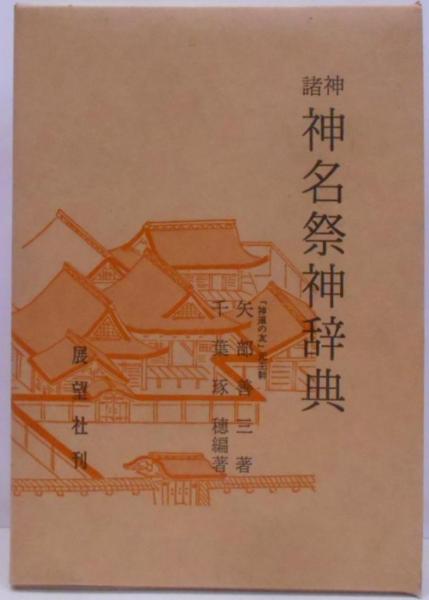 神諸
神名祭神辞典
「神道の友」
矢部善三著
千葉琢穂編著
展望社刊